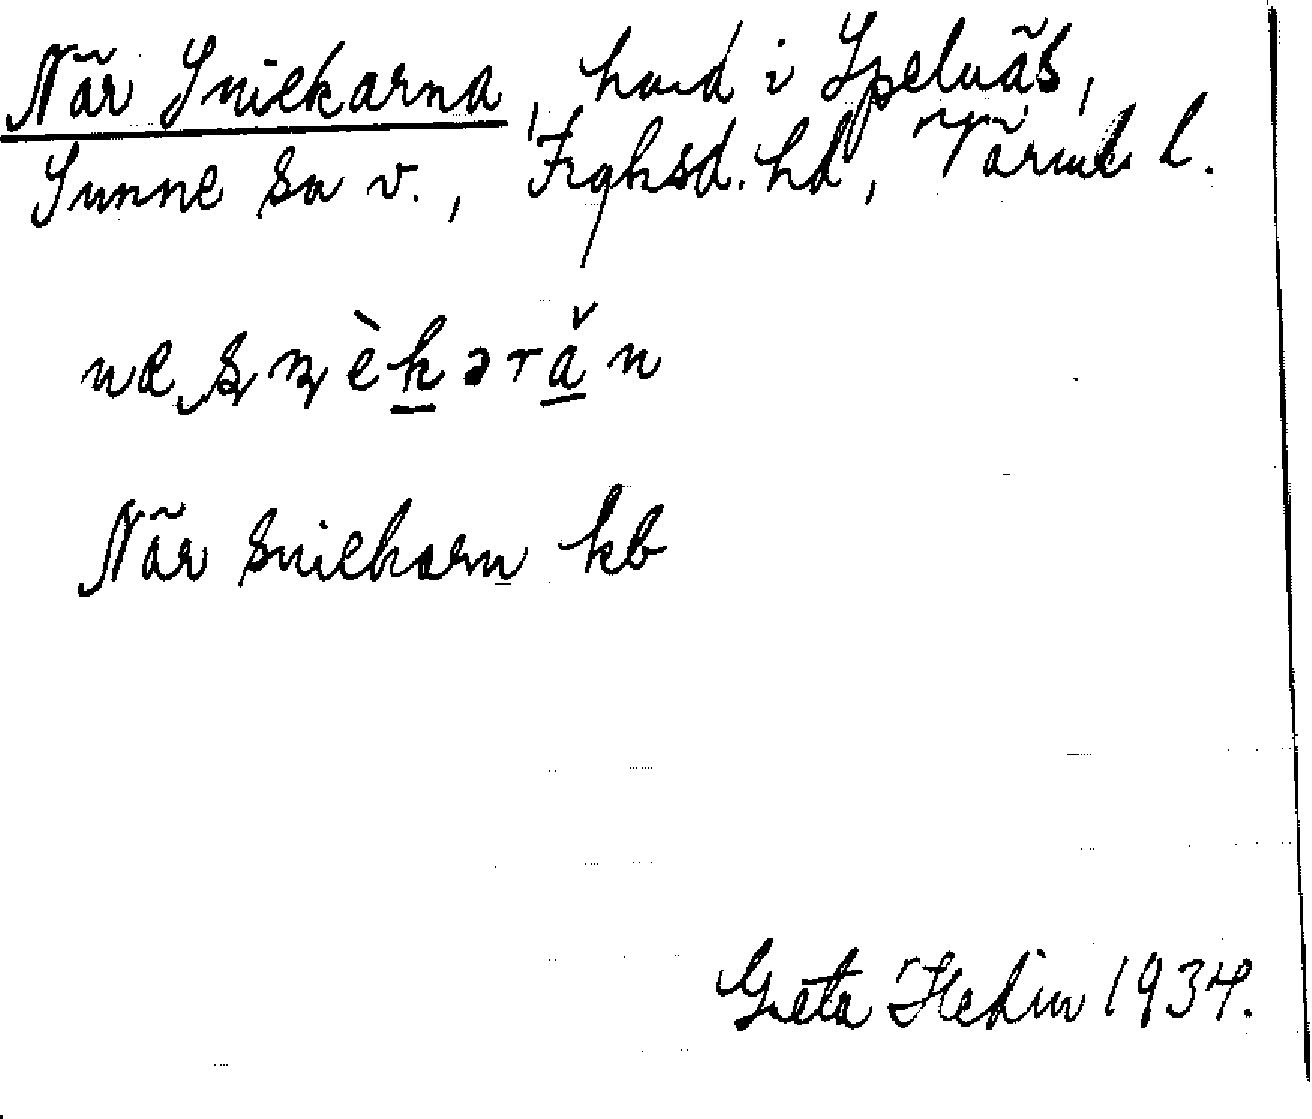 När Snickarna, hmd i Spelnäs,
Sunne sn v., Frykisd. hd, Värml. l.
När snickarn kb
Greta Hedin 1934.